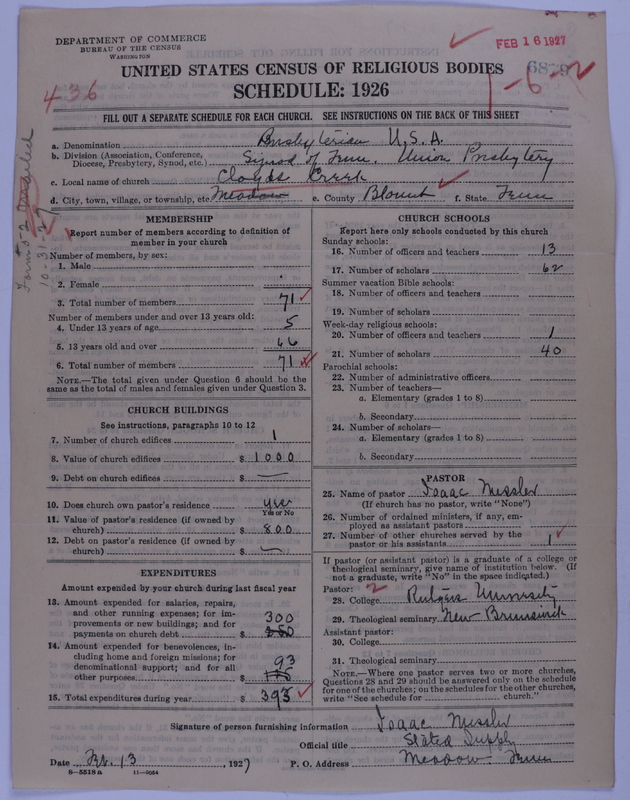 DEPARTMENT OF COMMERCE
BUREAU OF THE CENSUS
WASHINGTON
FEB 16 1927
UNITED STATES CENSUS OF RELIGIOUS BODIES
SCHEDULE: 1926
436
1-6-2
FILL OUT A SEPARATE SCHEDULE FOR EACH CHURCH. SEE INSTRUCTIONS ON THE BACK OF THIS SHEET
a. Denomination Presbyterian U.S.A.
b. Division (Association, Conference, Diocese, Presbytery, Synod, etc.) Synod of Tenn. Union Presbytery
c. Local name of church Cloyds Creek
d. City, town, village, or township, etc. Meadow e. County Blount f. State Tenn
10-31-29
MEMBERSHIP
Report number of members according to definition of
member in your church
Number of members, by sex:
1. Male
2. Female
3. Total number of members 71
Number of members under and over 13 years old:
4. Under 13 years of age 5
5. 13 years old and over 66
6. Total number of members 71
NOTE.—The total given under Question 6 should be the
same as the total of males and females given under Question 3.
CHURCH BUILDINGS
See instructions, paragraphs 10 to 12
7. Number of church edifices 1
8. Value of church edifices $ 1000
9. Debt on church edifices $ —
10. Does church own pastor's residence yes
Yes or No
11. Value of pastor's residence (if owned by
church) $ 800
12. Debt on pastor's residence (if owned by
church) $ —
EXPENDITURES
Amount expended by your church during last fiscal year
13. Amount expended for salaries, repairs,
and other running expenses; for im-
provements or new buildings; and for 300
payments on church debt $
14. Amount expended for benevolences, in-
cluding home and foreign missions; for
denominational support; and for all 93
other purposes $
15. Total expenditures during year $ 393
CHURCH SCHOOLS
Report here only schools conducted by this church
Sunday schools:
16. Number of officers and teachers 13
17. Number of scholars 62
Summer vacation Bible schools:
18. Number of officers and teachers
19. Number of scholars
Week-day religious schools:
20. Number of officers and teachers 1
21. Number of scholars 40
Parochial schools:
22. Number of administrative officers
23. Number of teachers—
a. Elementary (grades 1 to 8)
b. Secondary
24. Number of scholars—
a. Elementary (grades 1 to 8)
b. Secondary
PASTOR
25. Name of pastor Isaac Messler
(If church has no pastor, write "None")
26. Number of ordained ministers, if any, em-
ployed as assistant pastors
27. Number of other churches served by the
pastor or his assistants 1
If pastor (or assistant pastor) is a graduate of a college or
theological seminary, give name of institution below. (If
not a graduate, write "No" in the space indicated.)
Pastor: 2
28. College Rutgers University
29. Theological seminary New Brunswick
Assistant pastor:
30. College
31. Theological seminary
NOTE.—Where one pastor serves two or more churches,
Questions 28 and 29 should be answered only on the schedule
for one of the churches; on the schedules for the other churches,
write "See schedule for church."
Signature of person furnishing information Isaac Messler
Official title Stated Supply
Date Feb. 13, 1927 P. O. Address Meadow Tenn
8—5518 a 11—9054